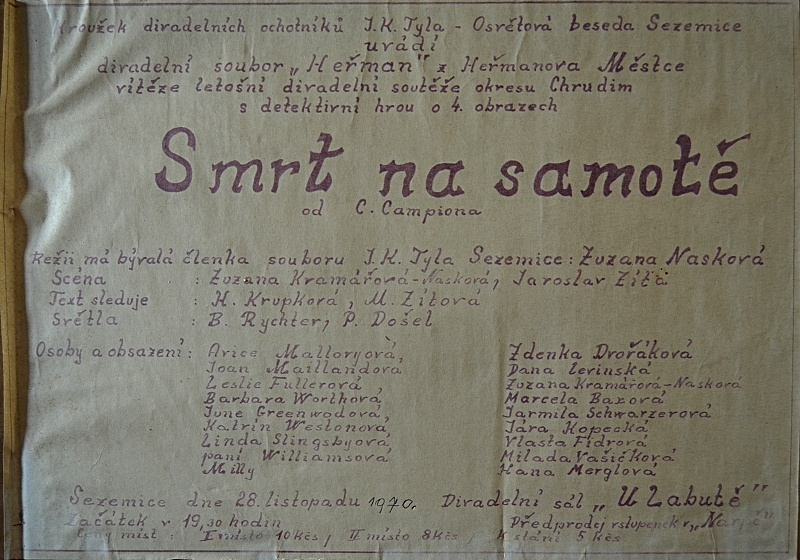 Kroužek divadelních ochotníků J.K. Tyla - Osvětová beseda Sezemice
uvádí
divadelní soubor „Heřman" z Heřmanova Městce
vítěze letošní divadelní soutěže okresu Chrudim
s detektivní hrou o 4. obrazech
Smrt na samotě
od C. Campiona
Režii má bývalá členka souboru J.K. Tyla Sezemice: Zuzana Nasková
Scéna : Zuzana Kramářová-Nasková, Jaroslav Zíta
Text sleduje : H. Krupková, M. Zítová
Světla : B. Rychter, P. Došel
Osoby a obsazení: Avice Malloryová, Zdenka Dvořáková
Joan Maillandová Dana Levinská
Leslie Fullerová Zuzana Kramářová-Nasková
Barbara Worthová Marcela Baxová
June Greenwodová, Jarmila Schwarzerová
Katrin Westonová Jára Kopecká
Linda Slingsbyová Vlasta Fidrová
paní Williamsová Milada Vašíčková
Milly Hana Merglová
Sezemice dne 28. listopadu 1970. Divadelní sál „U Labutě"
Začátek v 19,30 hodin Předprodej vstupenek v
Ceny míst: I místo 10 kčs, II místo 8 kčs, k stání 5 kčs